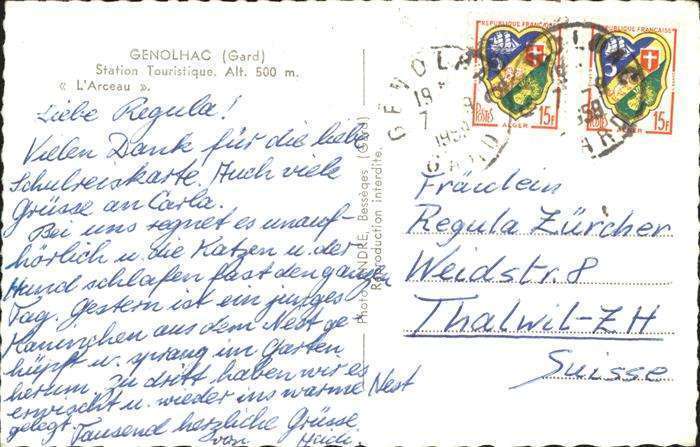 GENOLHAC (Gard)
Station Touristique. Alt. 500 m.
« L'Arceau ».
Liebe Regula!
Vielen Dank für die liebe
Schulreiskarte. Auch viele
Grüsse an Carla.
Bei uns regnet es unauf-
hörlich u. die Katzen u. der
Hund schlafen fast den ganzen
Tag. Gestern ist ein junges
Kaninchen aus dem Nest ge-
hüpft u. sprang im Garten
herum. Zu dritt haben wir es
erwischt u. wieder ins warme Nest
gelegt. Tausend herzliche Grüsse
Photo ANDRE, Bessèges (Gard)
Reproduction interdite.
REPUBLIQUE FRANÇAISE
POSTES
ALGER
15F
REPUBLIQUE FRANÇAISE
POSTES
ALGER
15F
GENOLHAC
19 H
7
1959
GARD
Fräulein
Regula Zürcher
Weidstr. 8
Thalwil-ZH
Suisse